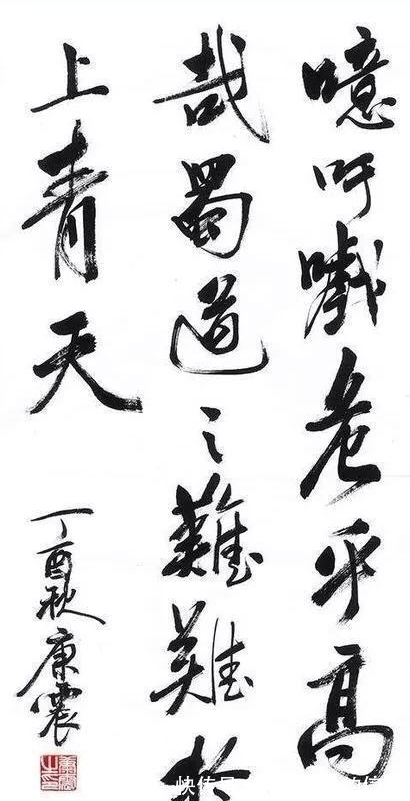 噫吁嚱危乎高
哉蜀道之難難於
上青天
丁酉秋康震